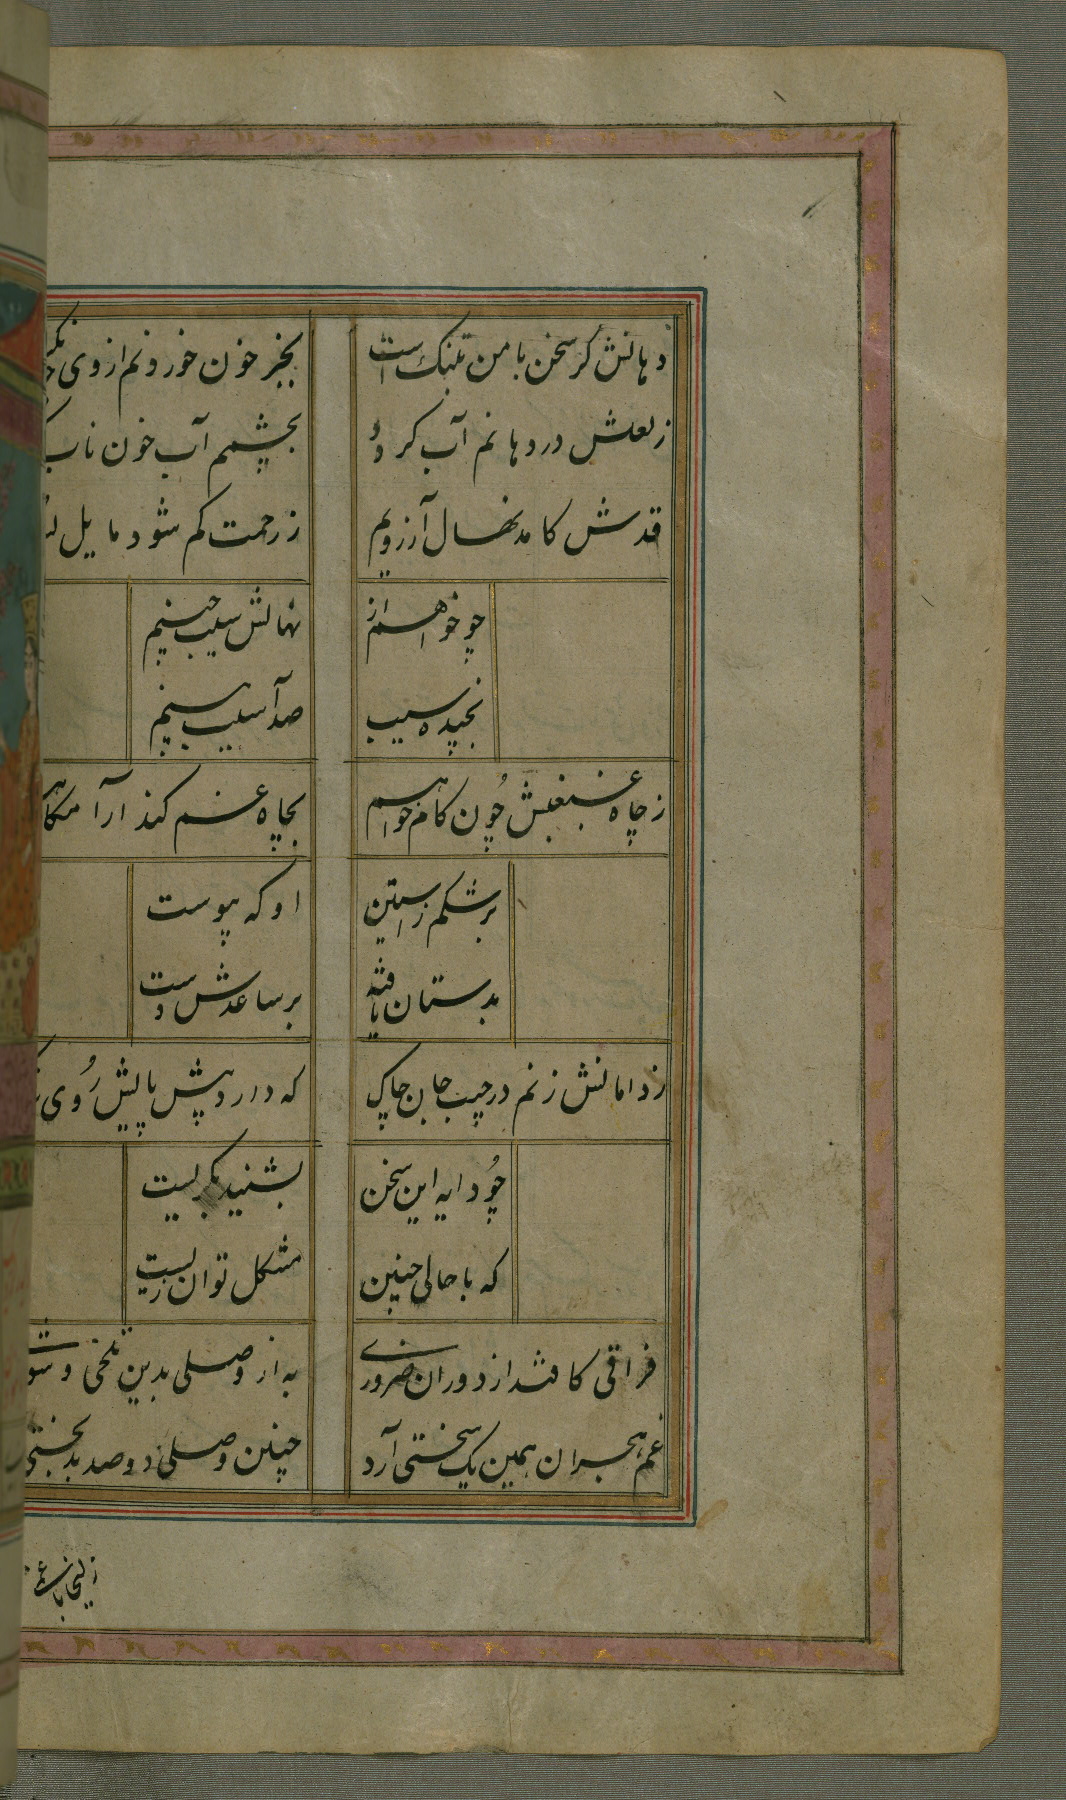 دهانش کز سخن با من بتنک است بجز خون خوردنم از وی
ز لعلش در دهانم آب کردد بچشمم آب خون ناب
قدش کامد نهال آرزویم ز رحمت کم شود مایل
چو خواهم از نهالش سیب چینم
نچیده سیب صد آسیب بینم
ز چاه غبغبش چون کام خواهم بچاه غم کند آرامکاهم
برشکم ز آستین او که پیوست
بدستان یافته بر ساعدش دست
ز دامانش زنم در جیب جان چاک که دارد پیش پایش روی
چو دایه این سخن بشنید بکریست
که با حالی چنین مشکل توان زیست
فراقی کافتد از دوران ضروری به از وصلی بدین تلخی و
غم هجران همین یک سختی آرد چنین وصلی دو صد بدبختی
زلیخا با